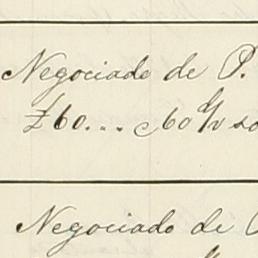 Negociado de P.
£60... 60 d/v
Negociado de